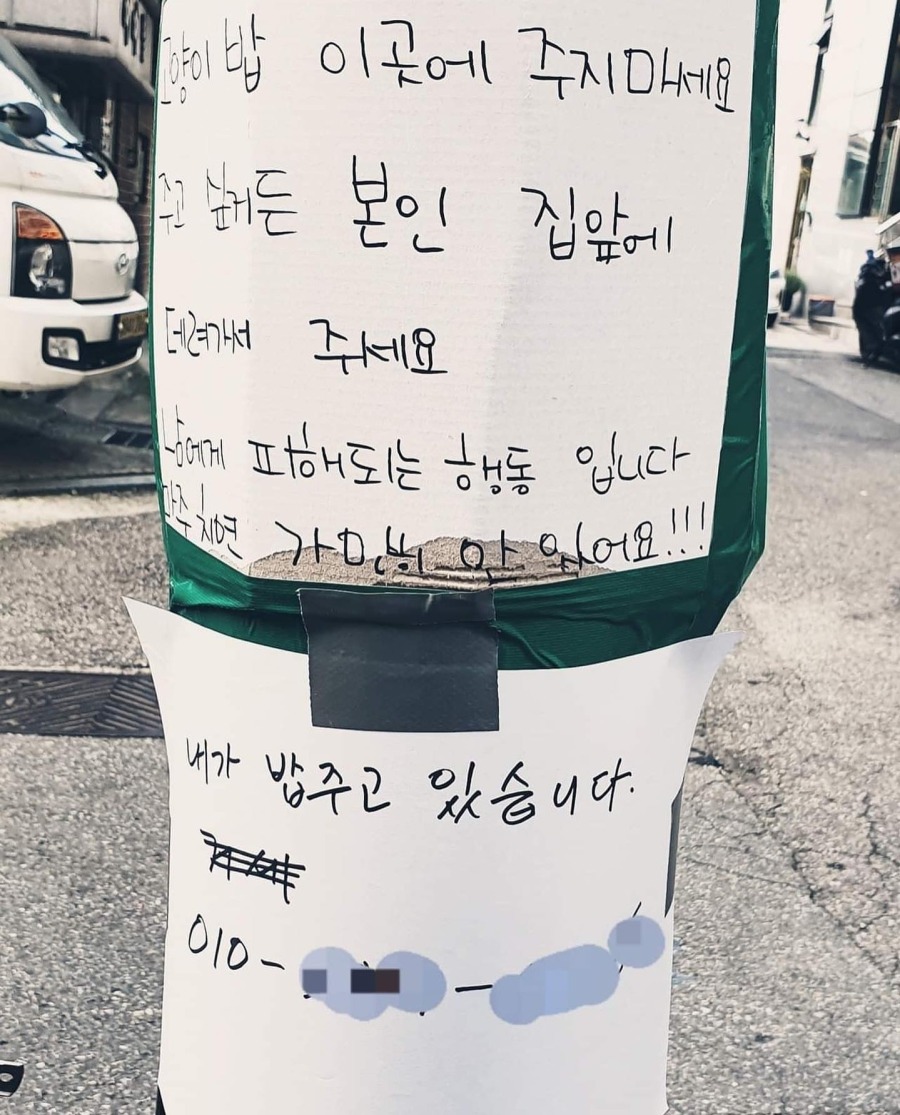 고양이 밥 이곳에 주지마세요
주고 싶거든 본인 집앞에
데려가서 주세요
남에게 피해되는 행동 입니다
마주치면 가만히 안 있어요!!!
내가 밥주고 있습니다.
010-